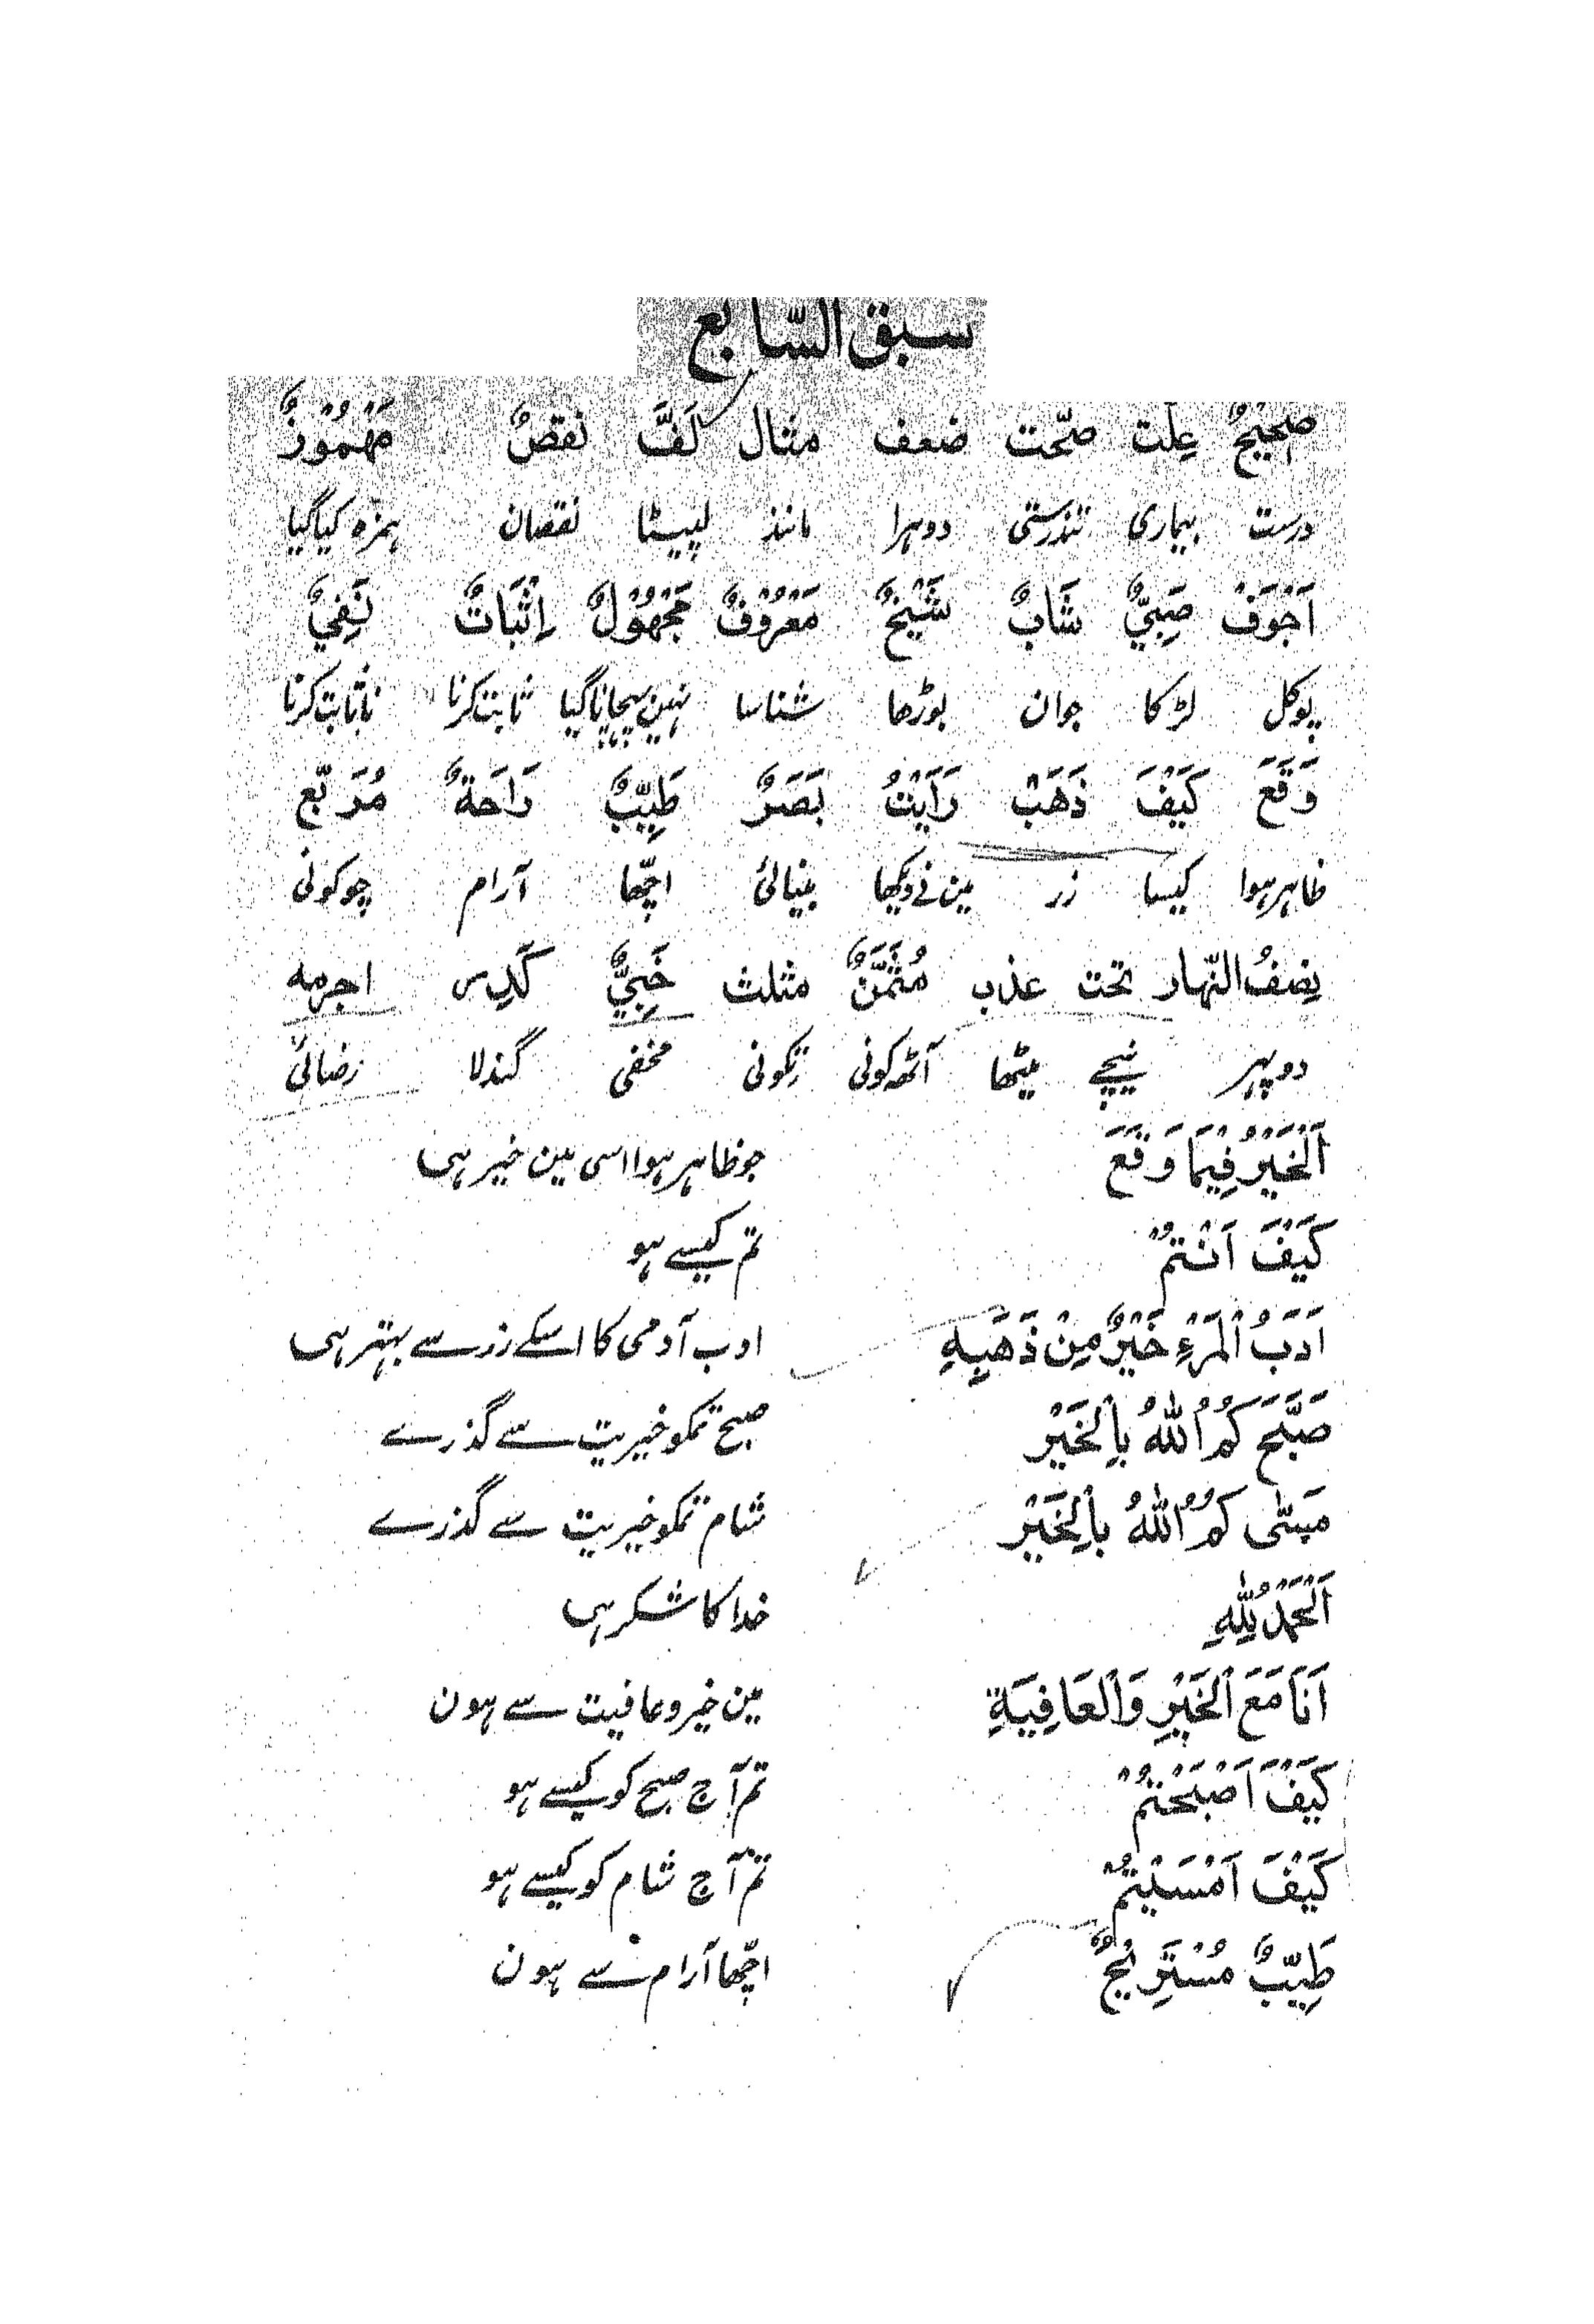 سبق السّابع
صَحِيْحٌ عِلّت صحّت ضعف مثال لَفَّ نقصٌ مَهْمُوْزٌ
درست بیماری تندرستی دوہرا مانند لپیٹا نقصان ہمزہ کیا گیا
اَجْوَفْ صَبِيٌّ شَابٌ شَيْخٌ مَعْرُوْفٌ مَجْهُوْلٌ اِثْبَاتٌ نَفِيٌ
پوکل لڑکا جوان بوڑھا شناسا نہین پہچانا گیا ثابت کرنا نا ثابت کرنا
وَقَعَ كَيْفَ ذَهَبْ رَاَيْتُ بَصَرٌ طَيِّبٌ رَاحَةٌ مُرَبّع
ظاہر ہوا کیسا زر مین نے دیکھا بینائی اچّھا آرام چوکونی
نِصْفُ النّهار تحت عذب مُثَمَّنٌ مثلث خَبِيٌّ كَدِس اجرمه
دوپہر نیچے میٹھا آٹھ کونی تکونی مخفی گندلا رضائی
اَلْخَيْرُ فِيْمَا وَقَعَ جو ظاہر ہوا اسی مین خیر ہی
كَيْفَ اَنْتُمْ تم کیسے ہو
اَدَبُ الْمَرْءِ خَيْرٌ مِنْ ذَهَبِهِ ادب آدمی کا اسکے زر سے بہتر ہی
صَبَّحَ كُمُ اللهُ بِالْخَيْرِ صبح تمکو خیریت سے گذرے
مَسّٰى كُمُ اللهُ بِالْخَيْرِ شام تمکو خیریت سے گذرے
اَلْحَمْدُ لِلّٰهِ خدا کا شکر ہی
اَنَا مَعَ الْخَيْرِ وَالْعَافِيَةِ مین خیر و عافیت سے ہون
كَيْفَ اَصْبَحْتُمْ تم آج صبح کو کیسے ہو
كَيْفَ اَمْسَيْتُمْ تم آج شام کو کیسے ہو
طَيِّبٌ مُسْتَرِيْحٌ اچّھا آرام سے ہون